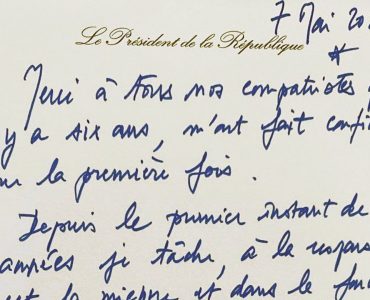 7 Mai 20
Le Président de la République
Merci à tous nos compatriotes
y a six ans, m'ont fait confi
la première fois.
Depuis le premier instant de
années je tâche, à la
la mienne et dans le